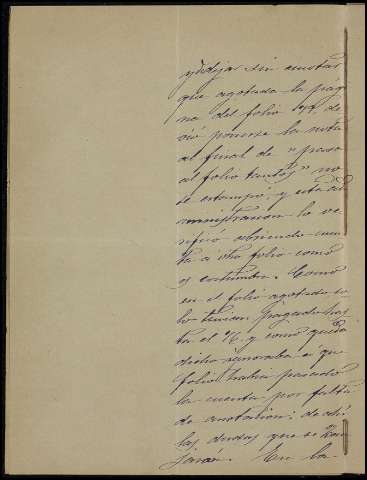 y dejar sin anotar
que agotada la pági
na del folio 47, de
vió ponerse la nota
al final de "pasa
al folio tantos" no
se estampó, y esta ad
ministracion lo ve
rificó abriendo cuen
ta á otro folio como
es costumbre. Como
en el folio agotado so
lo tenian pagado has
ta el 76, y como queda
dicho ignoraba á que
folio habia pasado
la cuenta por falta
de anotacion; de ahí
las dudas que se
jaran. En la